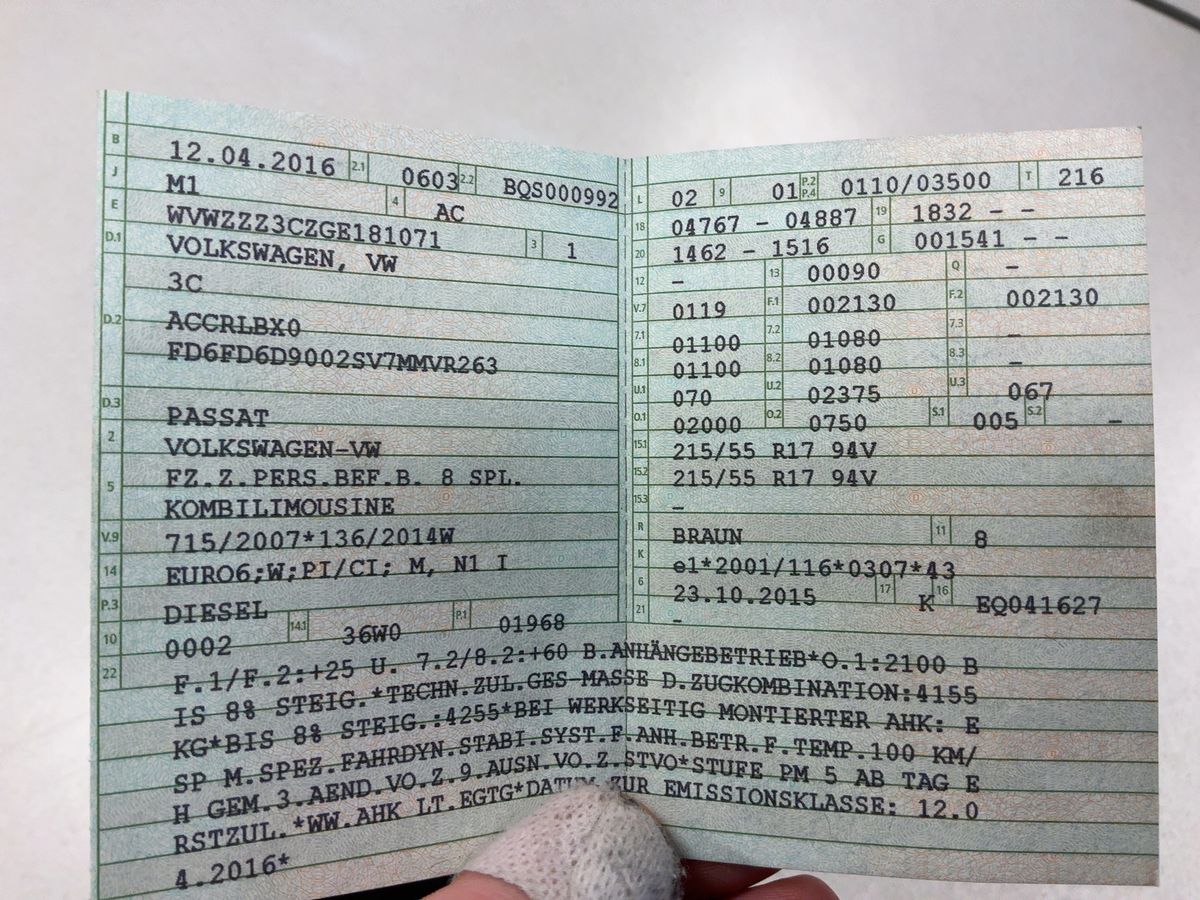 B 12.04.2016 2.1 0603 2.2 BQS000992
J M1 4 AC
E WVWZZZ3CZGE181071 3 1
D.1 VOLKSWAGEN, VW
3C
D.2 ACCRLBX0
FD6FD6D9002SV7MMVR263
D.3 PASSAT
2 VOLKSWAGEN-VW
5 FZ.Z.PERS.BEF.B. 8 SPL.
KOMBILIMOUSINE
V.9 715/2007*136/2014W
14 EURO6;W;PI/CI; M, N1 I
P.3 DIESEL
10 0002 14.1 36W0 P.1 01968
L 02 9 01 P.2 P.4 0110/03500 T 216
18 04767 - 04887 19 1832 - -
20 1462 - 1516 G 001541 - -
12 - 13 00090 Q -
V.7 0119 F.1 002130 F.2 002130
7.1 01100 7.2 01080 7.3 -
8.1 01100 8.2 01080 8.3 -
U.1 070 U.2 02375 U.3 067
O.1 02000 O.2 0750 S.1 005 S.2 -
15.1 215/55 R17 94V
15.2 215/55 R17 94V
15.3 -
R BRAUN 11 8
K e1*2001/116*0307*43
6 23.10.2015 17 K 16 EQ041627
21 -
22 F.1/F.2:+25 U. 7.2/8.2:+60 B.ANHÄNGEBETRIEB*O.1:2100 B
IS 8% STEIG.*TECHN.ZUL.GES MASSE D.ZUGKOMBINATION:4155
KG*BIS 8% STEIG.:4255*BEI WERKSEITIG MONTIERTER AHK: E
SP M.SPEZ.FAHRDYN.STABI.SYST.F.ANH.BETR.F.TEMP.100 KM/
H GEM.3.AEND.VO.Z.9.AUSN.VO.Z.STVO*STUFE PM 5 AB TAG E
RSTZUL.*WW.AHK LT.EGTG*DATUM ZUR EMISSIONSKLASSE: 12.0
4.2016*